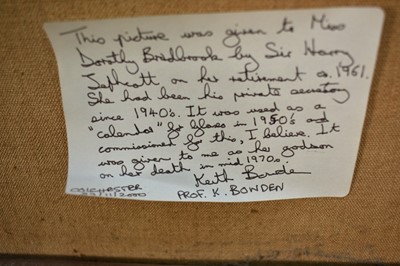 This picture was given to Miss
Dorothy Bradbrook by Sir Harry
Jephcott on her retirement c. 1961.
She had been his private secretary
since 1940's. It was used as a
"calendar" for Glaxo in 1950's and
commissioned for this, I believe. It
was given to me as her godson
on her death in mid 1970s.
Keith Bowden
PROF. K. BOWDEN
COLCHESTER